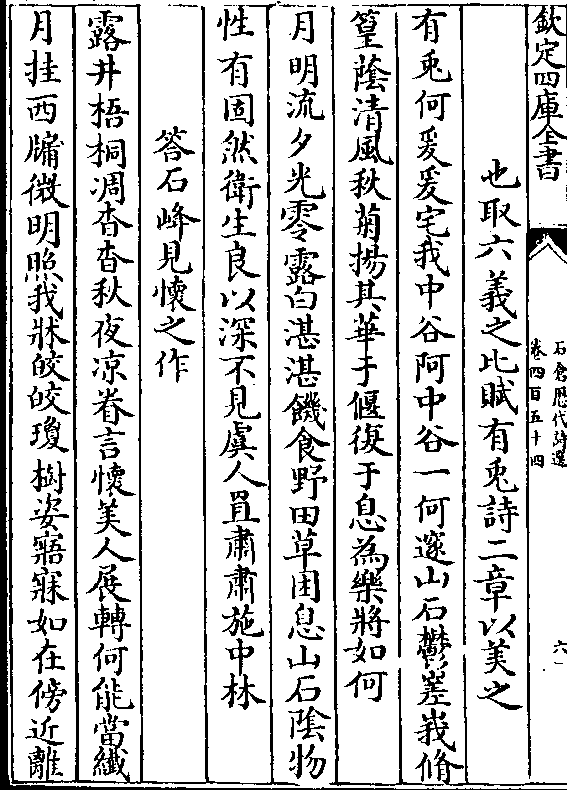 欽定四庫全書
石倉歷代詩選
卷四百五十四
六
也取六義之比賦有兎詩二章以美之
有兎何爰爰宅我中谷阿中谷一何邃山石鬱嵳峩脩
篁蔭清風秋菊揚其華于偃復于息為樂將如何
月明流夕光零露白湛湛饑食野田草困息山石陰物
性有固然衛生良以深不見虞人罝肅肅施中林
答石峰見懷之作
露井梧桐凋杳杳秋夜凉眷言懷美人展轉何能當纎
月挂西牗微明照我牀皎皎瓊樹姿寤寐如在傍近離